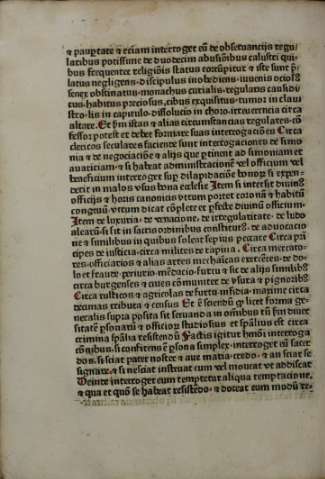 ⁊ paup̄tate ⁊ eciam interroget eū de obseruancijs regu-
laribus potissime de duodecim abusiōibus claustri qui-
bus frequenter religiōis status corrūpitur ⁊ iste sunt p̄-
latus negligens. discipulus inobediens. iuuenis ocios⁹
senex obstinatus. monachus curialis. regularis causidi-
cus. habitus preciosus. cibus exquisitus. rumor in clau-
stro. lis in capitulo. dissolucio in choro. irreuerencia circa
altare. Et s̄m istas ⁊ alias circumstancias regulares cō-
fessor potest et debet formare suas interrogaciōes Circa
clericos seculares faciende sunt interrogaciones de simo-
nia ⁊ de negociaciōe ⁊ alijs que ptinent ad simoniam et
auariciam. ⁊ si habeat administracionē vel officium vel
beneficium interroget sup dilapidaciōe bonoꝝ si expen-
derit in malos vsus bona ecclesie Item si intersit diuinis
officijs ⁊ horis canonicis vtrum portet coronā ⁊ habitū
congruū. vtrum dicat cōplete et p̄fecte diuinū officium.
Item de luxuria. de venacione. de irregularitate. de ludo
aleaꝝ. si sit in sacris ordinibus constitut⁹. de aduocacio
ne ⁊ similibus in quibus solent sepius peccare Circa prī
cipes de iusticia. circa milites de rapina. Circa mercato-
res. officiarios ⁊ alias artes mechaīcas exercētes. de do-
lo et fraude. periurio. mēdacio. furtu ⁊ sic de alijs similib⁹
circa burgenses ⁊ ciues cōmuniter de vsura ⁊ pignorib⁹
Circa rusticos ⁊ agricolas de furto. inuidia. maxime circa
decimas tributa ⁊ census Et ē sciendū ꝙ licet forma ge-
neralis supra posita sit seruanda in omnibus tn̄ s̄m diuer
sitatē psonaꝝ ⁊ officioꝝ studiosius et spālius est circa
crimina spālia insistendū Factis igitur hmōi interroga
cōnibus. si confitens ē psona simplex. interroget eū sacer
do. si sciat pater noster ⁊ aue maria. credo. ⁊ an sciat se
signare. ⁊ si nesciat instruat eum vel moueat vt addiscat
Deinde interroget eum an temptetur aliqua temptacione.
⁊ qua et quō se habeat resistēdo. ⁊ doceat eum modū re-